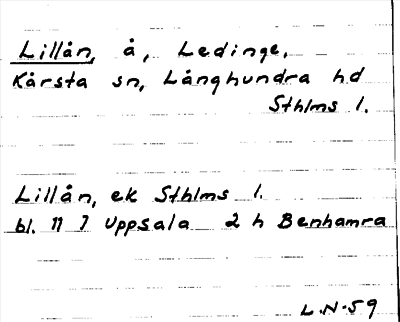 Lillån, å, Ledinge,
Kårsta sn, Långhundra hd
Sthlms l.
Lillån, ek Sthlms l.
bl. 11 7 Uppsala 2 h Benhamra
L.N-59